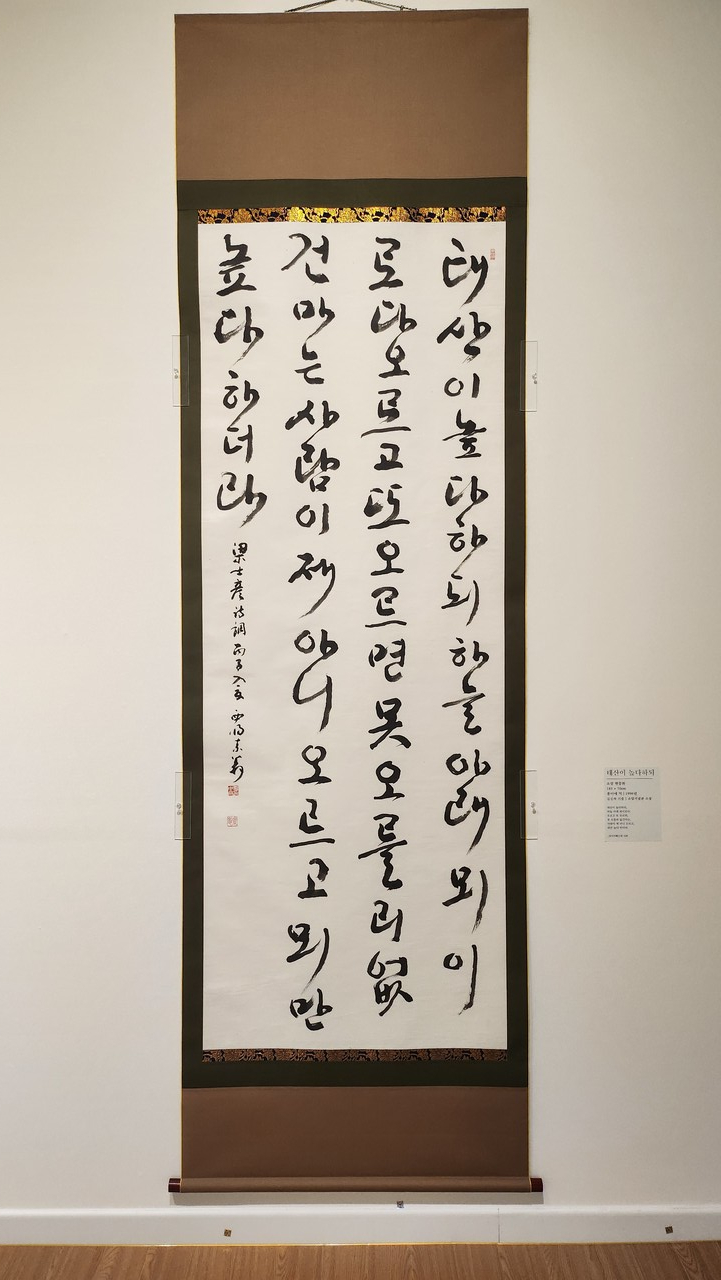 태산이높다하되하늘아래뫼이
로다오르고또오르면못오를리없
건마는사람이제아니오르고뫼만
높다하더라
梁士彦詩調丙子入夏
태산이 높다하되
종이에 먹 | 1996년